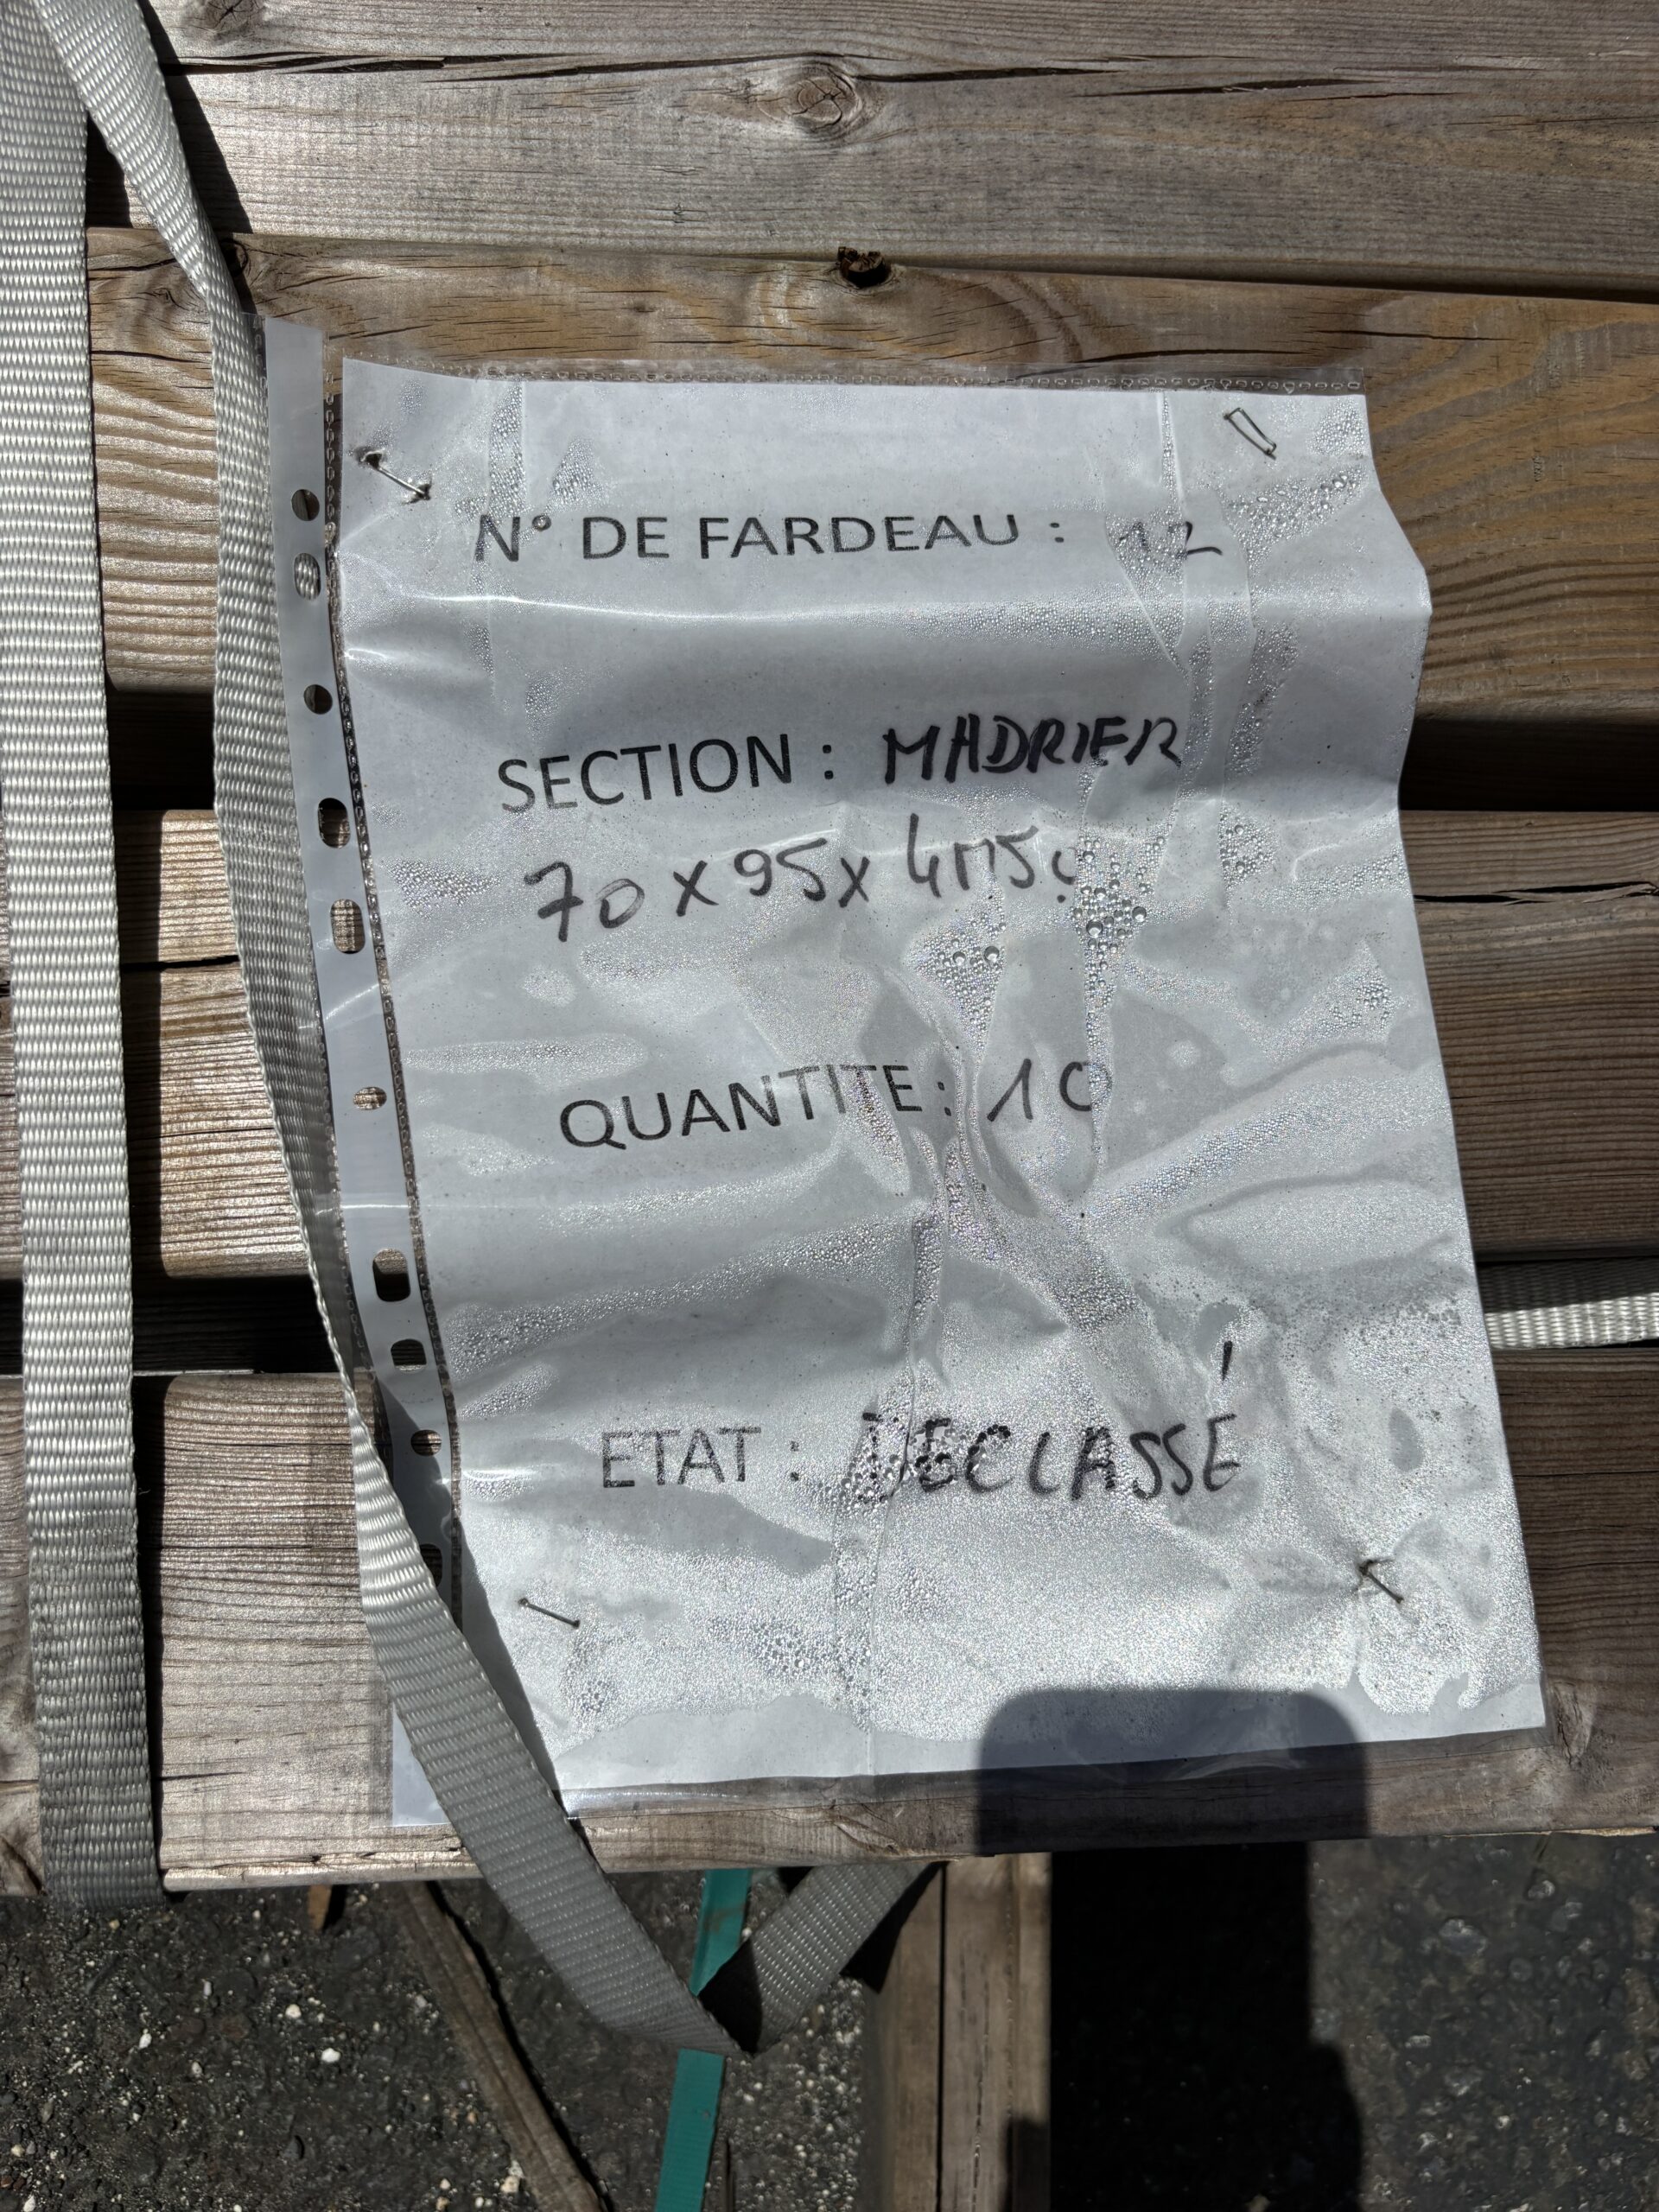 N° DE FARDEAU : 12
SECTION : MADRIER
70 x 95 x 4M50
QUANTITE : 10
ETAT : DECLASSÉ